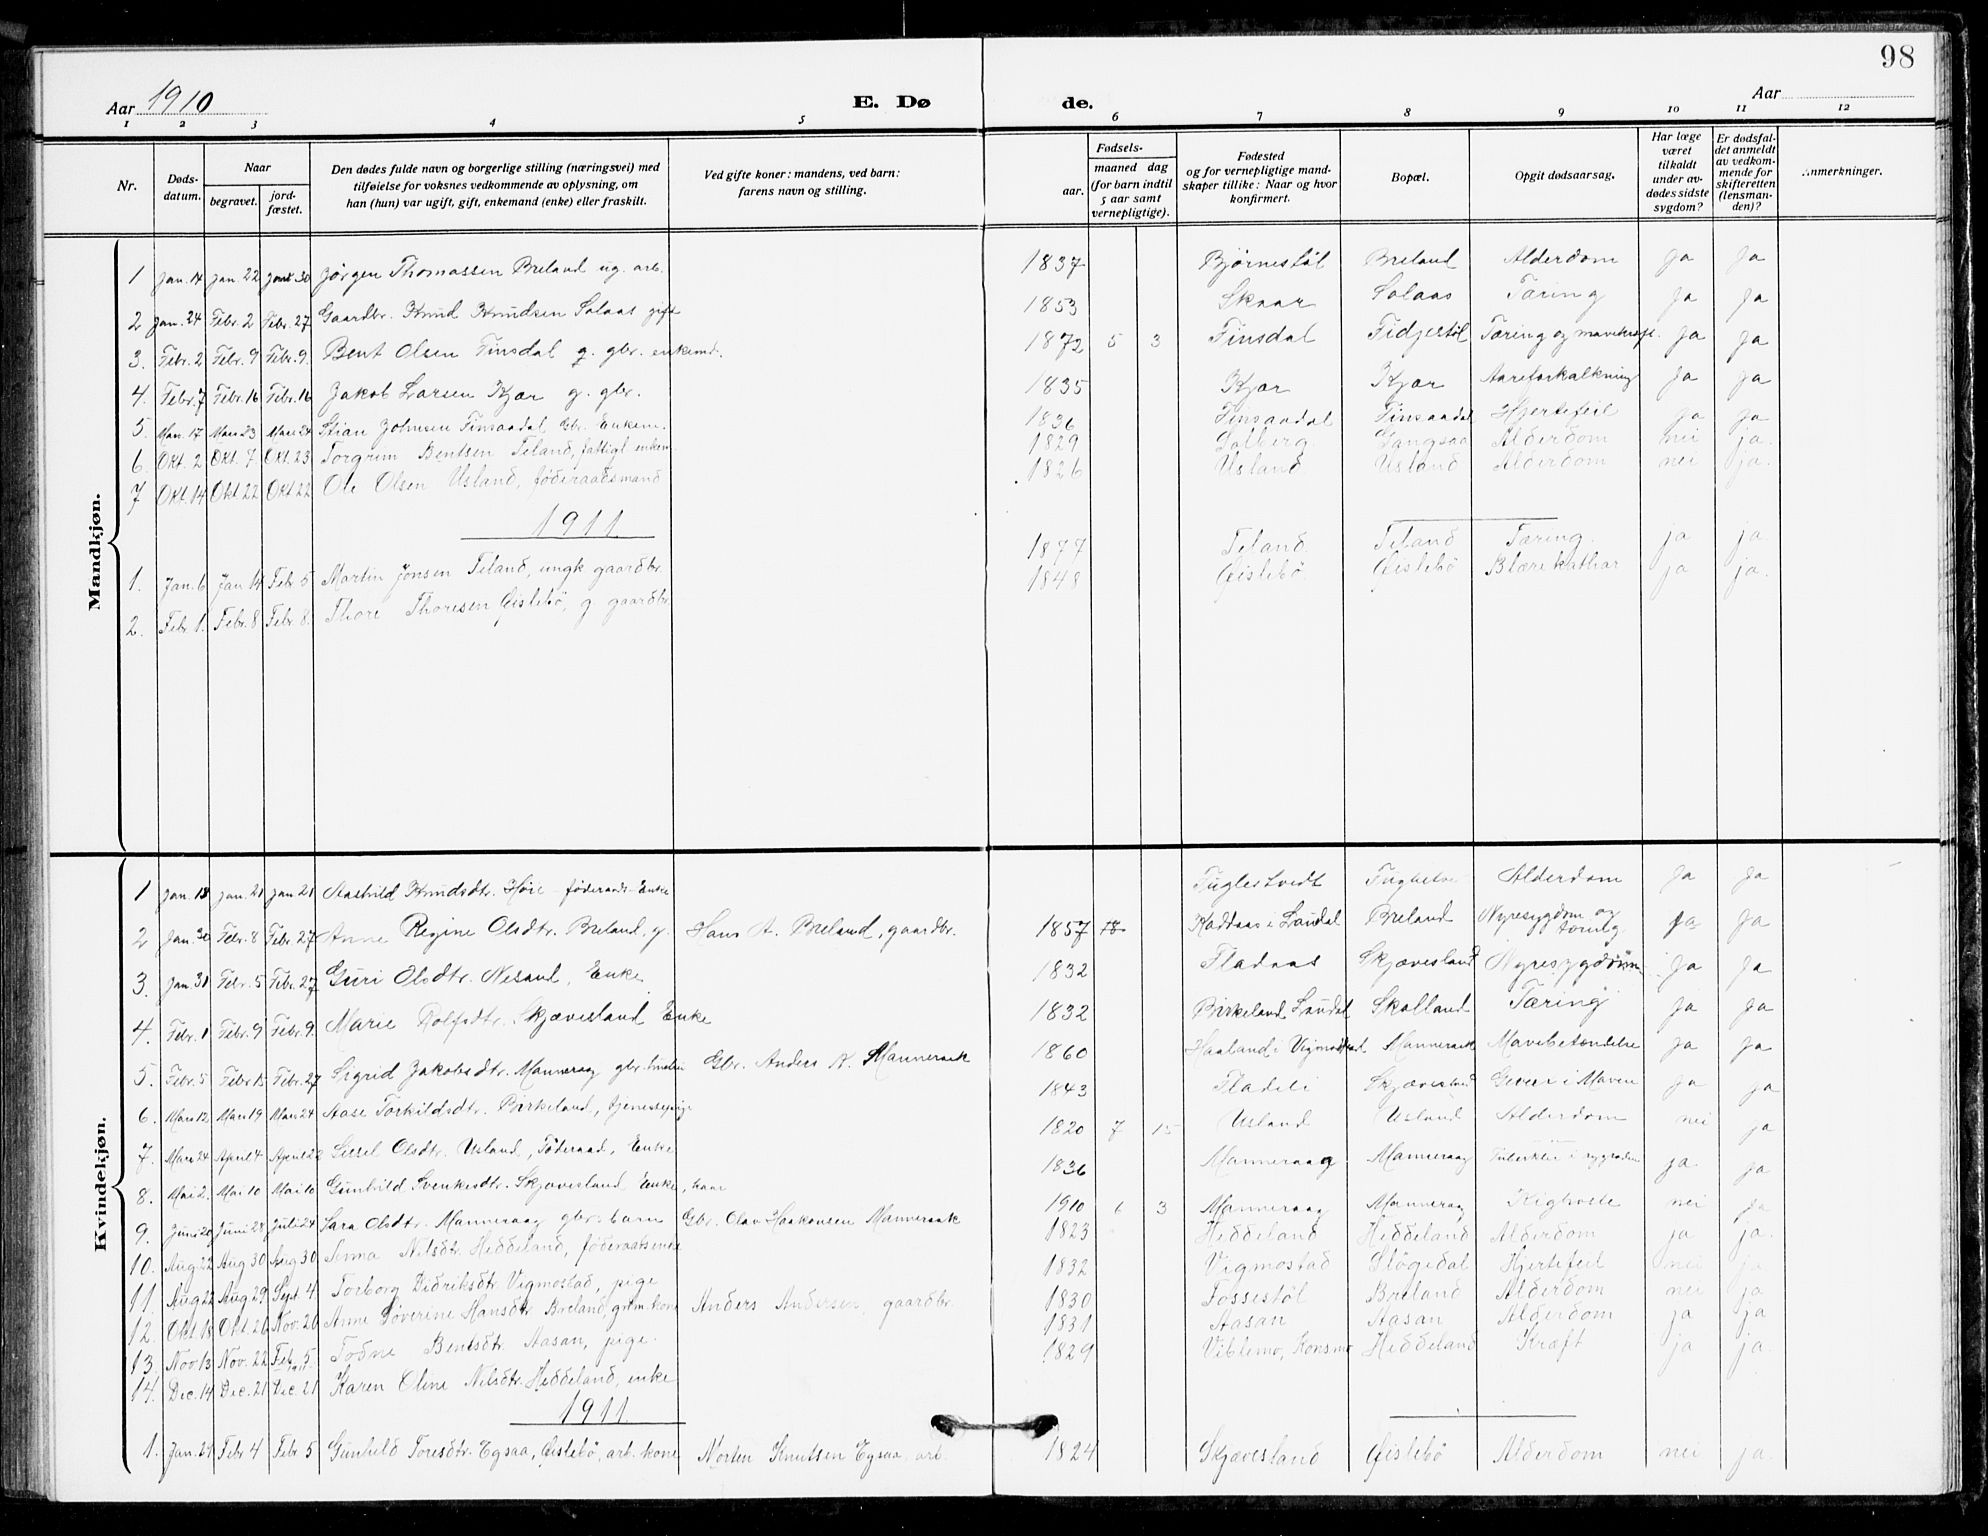 98
Aar 1910 E. Dø de. Aar
1 2 3 4 5 6 7 8 9 10 11 12
Nr. Døds-datum. Naar begravet. jord-fæstet. Den dødes fulde navn og borgerlige stilling (næringsvei) med tilføielse for voksnes vedkommende av oplysning, om han (hun) var ugift, gift, enkemand (enke) eller fraskilt. Ved gifte koner: mandens, ved barn: farens navn og stilling. Fødsels- aar. maaned dag (for barn indtil 5 aar samt vernepligtige). Fødested og for vernepligtige mand-skaper tillike: Naar og hvor konfirmert. Bopæl. Opgit dødsaarsag. Har læge været tilkaldt under av-dødes sidste sygdom? Er dødsfal-det anmeldt av vedkom-mende for skifteretten (lensman-den)? Anmerkninger.
Mandkjøn.
1 Jan. 14 Jan. 22 Jan. 30 Jørgen Thomassen Breland ug. arb. 1837 Bjørnestøl Breland Alderdom Ja Ja
2 Jan. 24 Febr. 2 Febr. 27 Gaardbr. Knud Knudsen Solaas gift 1853 Skaar Solaas Tæring Ja Ja
3. Febr. 2 Febr. 9 Febr. 9. Bent Olsen Finsdal g. gbr. enkemd. 1872 5 3 Finsdal Fidjestøl Tæring og mavekræft. Ja Ja
4. Febr. 7 Febr. 16 Febr. 16 Jakob Larsen Kjær g. gbr. 1835 Kjær Kjær Aareforkalkning Ja Ja
5. Mars 17 Mars 23 Mars 24 Stian Johnsen Finsaadal Gbr. Enkem. 1836 Finsaadal Finsaadal Hjertefeil ja Ja
6. Okt. 2 Okt. 7 Okt. 23 Torgrim Bentsen Teland, fattigl. enkem. 1829 Solberg Gangsaa Alderdom nei ja.
7 Okt. 14 Okt. 22 Okt. 22 Ole Olsen Usland, føderaadsmand 1826 Usland Usland Alderdom nei ja.
1911
1. Jan. 6 Jan. 14 Feb. 5 Martin Jonsen Teland, ungk. gaardbr. 1877 Teland Teland Tæring. ja ja.
2. Febr. 1. Febr. 8 Febr. 8. Thore Thoresen Øislebø, g. gaardbr. 1848 Øislebø Øislebø Blærekathar ja ja.
Kvindekjøn.
1 Jan. 13 Jan. 21 Jan. 21 Aashild Knudsdtr. Høie føderaads-Enke Fuglestvedt Alderdom Ja Ja
2 Jan. 30 Febr. 8 Febr. 27 Anne Regine Olsdtr. Breland, g. Hans A. Breland, gaardbr. 1857 18 Kaddaas i Laudal Breland Nyresygdom og Ja Ja
3. Jan. 31 Febr. 5 Febr. 27 Guri Olsdtr. Nesand, Enke 1832 Fladaas Skjævesland Nyresygdom Ja Ja
4. Febr. 1 Febr. 9 Febr. 9. Marie Rolfsdtr. Skjævesland Enke 1832 Birkeland Laudal Skolland Tæring ja Ja
5. Febr. 5 Febr. 15 Febr. 27 Sigrid Jakobsdtr. Manneraag gbr. hustru Gbr. Anders K. Manneraak 1860 Haaland i Vigmostad Manneraak Mavebetændelse Ja Ja
6. Mars 12 Mars 19 Mars 24 Aase Torkildsdtr. Birkeland, tjenestepige 1843 Fladeli Skjævesland i Maven ja ja
7. Mars 24 April 4 April 22 Sissel Olsdtr. Usland, Føderaad, Enke 1820 7 15 Usland Usland Alderdom nei ja
8. Mai 2. Mai 10 Mai 10 Gunhild Svenkesdtr. Skjævesland Enke, 1836 Manneraag Manneraag i rygraden ja ja
9. Juni 20 Juni 28 Juli 24 Sara Olsdtr. Manneraag gbr. barn Gbr. Olav Haakonsen Manneraak 1910 6 3 Manneraag Manneraag Kighoste nei ja
10. Aug. 22 Aug 30 Aug 30 Nilsdtr. Heddeland, føderaadsenke 1823 Heddeland Heddeland Alderdom ja ja.
11. Aug 22 Aug 29 Sept. 4 Torborg Didriksdtr. Vigmostad, pige 1832 Vigmostad Støgedal Hjertefeil nei ja
12. Okt. 18 Okt. 26 Nov. 20 Anne Søverine Hansdtr. Breland, grm. kone Anders Andersen, gaardbr. 1830 Fossestøl Breland Alderdom nei ja
13. Nov. 13 Nov. 22 Feb. 5. 1911 Todne Bentsdtr. Aasan, pige. 1831 Aasan Aasan Alderdom ja ja
14. Dec. 14 Dec. 21 Dec. 21 Karen Oline Nilsdtr. Heddeland, enke 1829 Viblemo, Konsmo Heddeland Kræft ja ja.
1911
1. Jan. 27 Febr. 4 Febr. 5 Gunhild Toresdtr. Egsaa, Øislebø, arb. kone Morten Knutsen Egsaa, arb. 1824 Skjævesland Øislebø Alderdom nei ja.